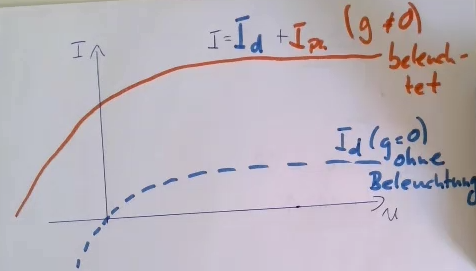 I = I_d + I_ph (g ≠ 0)
I
beleuch-
tet
I_d (g=0)
ohne
Beleuchtung
u